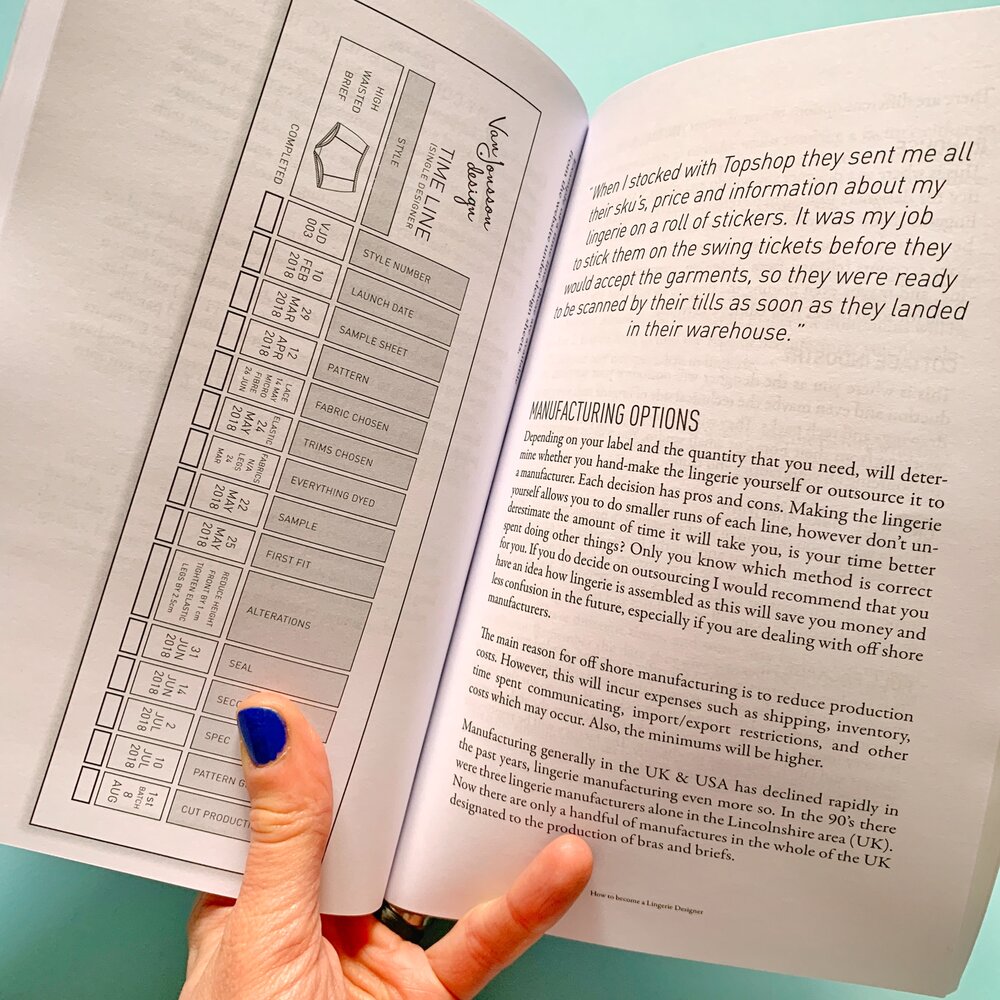 Van Jonsson
design
TIME LINE
(SINGLE DESIGNER)
STYLE
STYLE NUMBER
LAUNCH DATE
SAMPLE SHEET
PATTERN
FABRIC CHOSEN
TRIMS CHOSEN
EVERYTHING DYED
SAMPLE
FIRST FIT
ALTERATIONS
SEAL
SPEC
PATTERN
CUT
HIGH
WASTED
BRIEF
V/D
003
10
FEB
2018
29
MAR
2018
12
APR
2018
LACE
14 MAY
MICRO
FIBRE
26 JUN
ELASTIC
24
MAY
2018
FABRICS
N/A
LEGS
24
MAR
22
MAY
2018
25
MAY
2018
REDUCE HEIGHT
FRONT BY 1 cm
TIGHTEN ELASTIC
LEGS BY 2.5cm
31
JUN
2018
14
JUN
2018
2
JUL
2018
10
JUL
2018
1st
BATCH
8
AUG
COMPLETED
"When I stocked with Topshop they sent me all
their sku's, price and information about my
lingerie on a roll of stickers. It was my job
to stick them on the swing tickets before they
would accept the garments, so they were ready
to be scanned by their tills as soon as they landed
in their warehouse."
MANUFACTURING OPTIONS
Depending on your label and the quantity that you need, will deter-
mine whether you hand-make the lingerie yourself or outsource it to
a manufacturer. Each decision has pros and cons. Making the lingerie
yourself allows you to do smaller runs of each line, however don't un-
derestimate the amount of time it will take you, is your time better
spent doing other things? Only you know which method is correct
for you. If you do decide on outsourcing I would recommend that you
have an idea how lingerie is assembled as this will save you money and
less confusion in the future, especially if you are dealing with off shore
manufacturers.
The main reason for off shore manufacturing is to reduce production
costs. However, this will incur expenses such as shipping, inventory,
time spent communicating, import/export restrictions, and other
costs which may occur. Also, the minimums will be higher.
Manufacturing generally in the UK & USA has declined rapidly in
the past years, lingerie manufacturing even more so. In the 90's there
were three lingerie manufacturers alone in the Lincolnshire area (UK).
Now there are only a handful of manufactures in the whole of the UK
designated to the production of bras and briefs.
How to become a Lingerie Designer